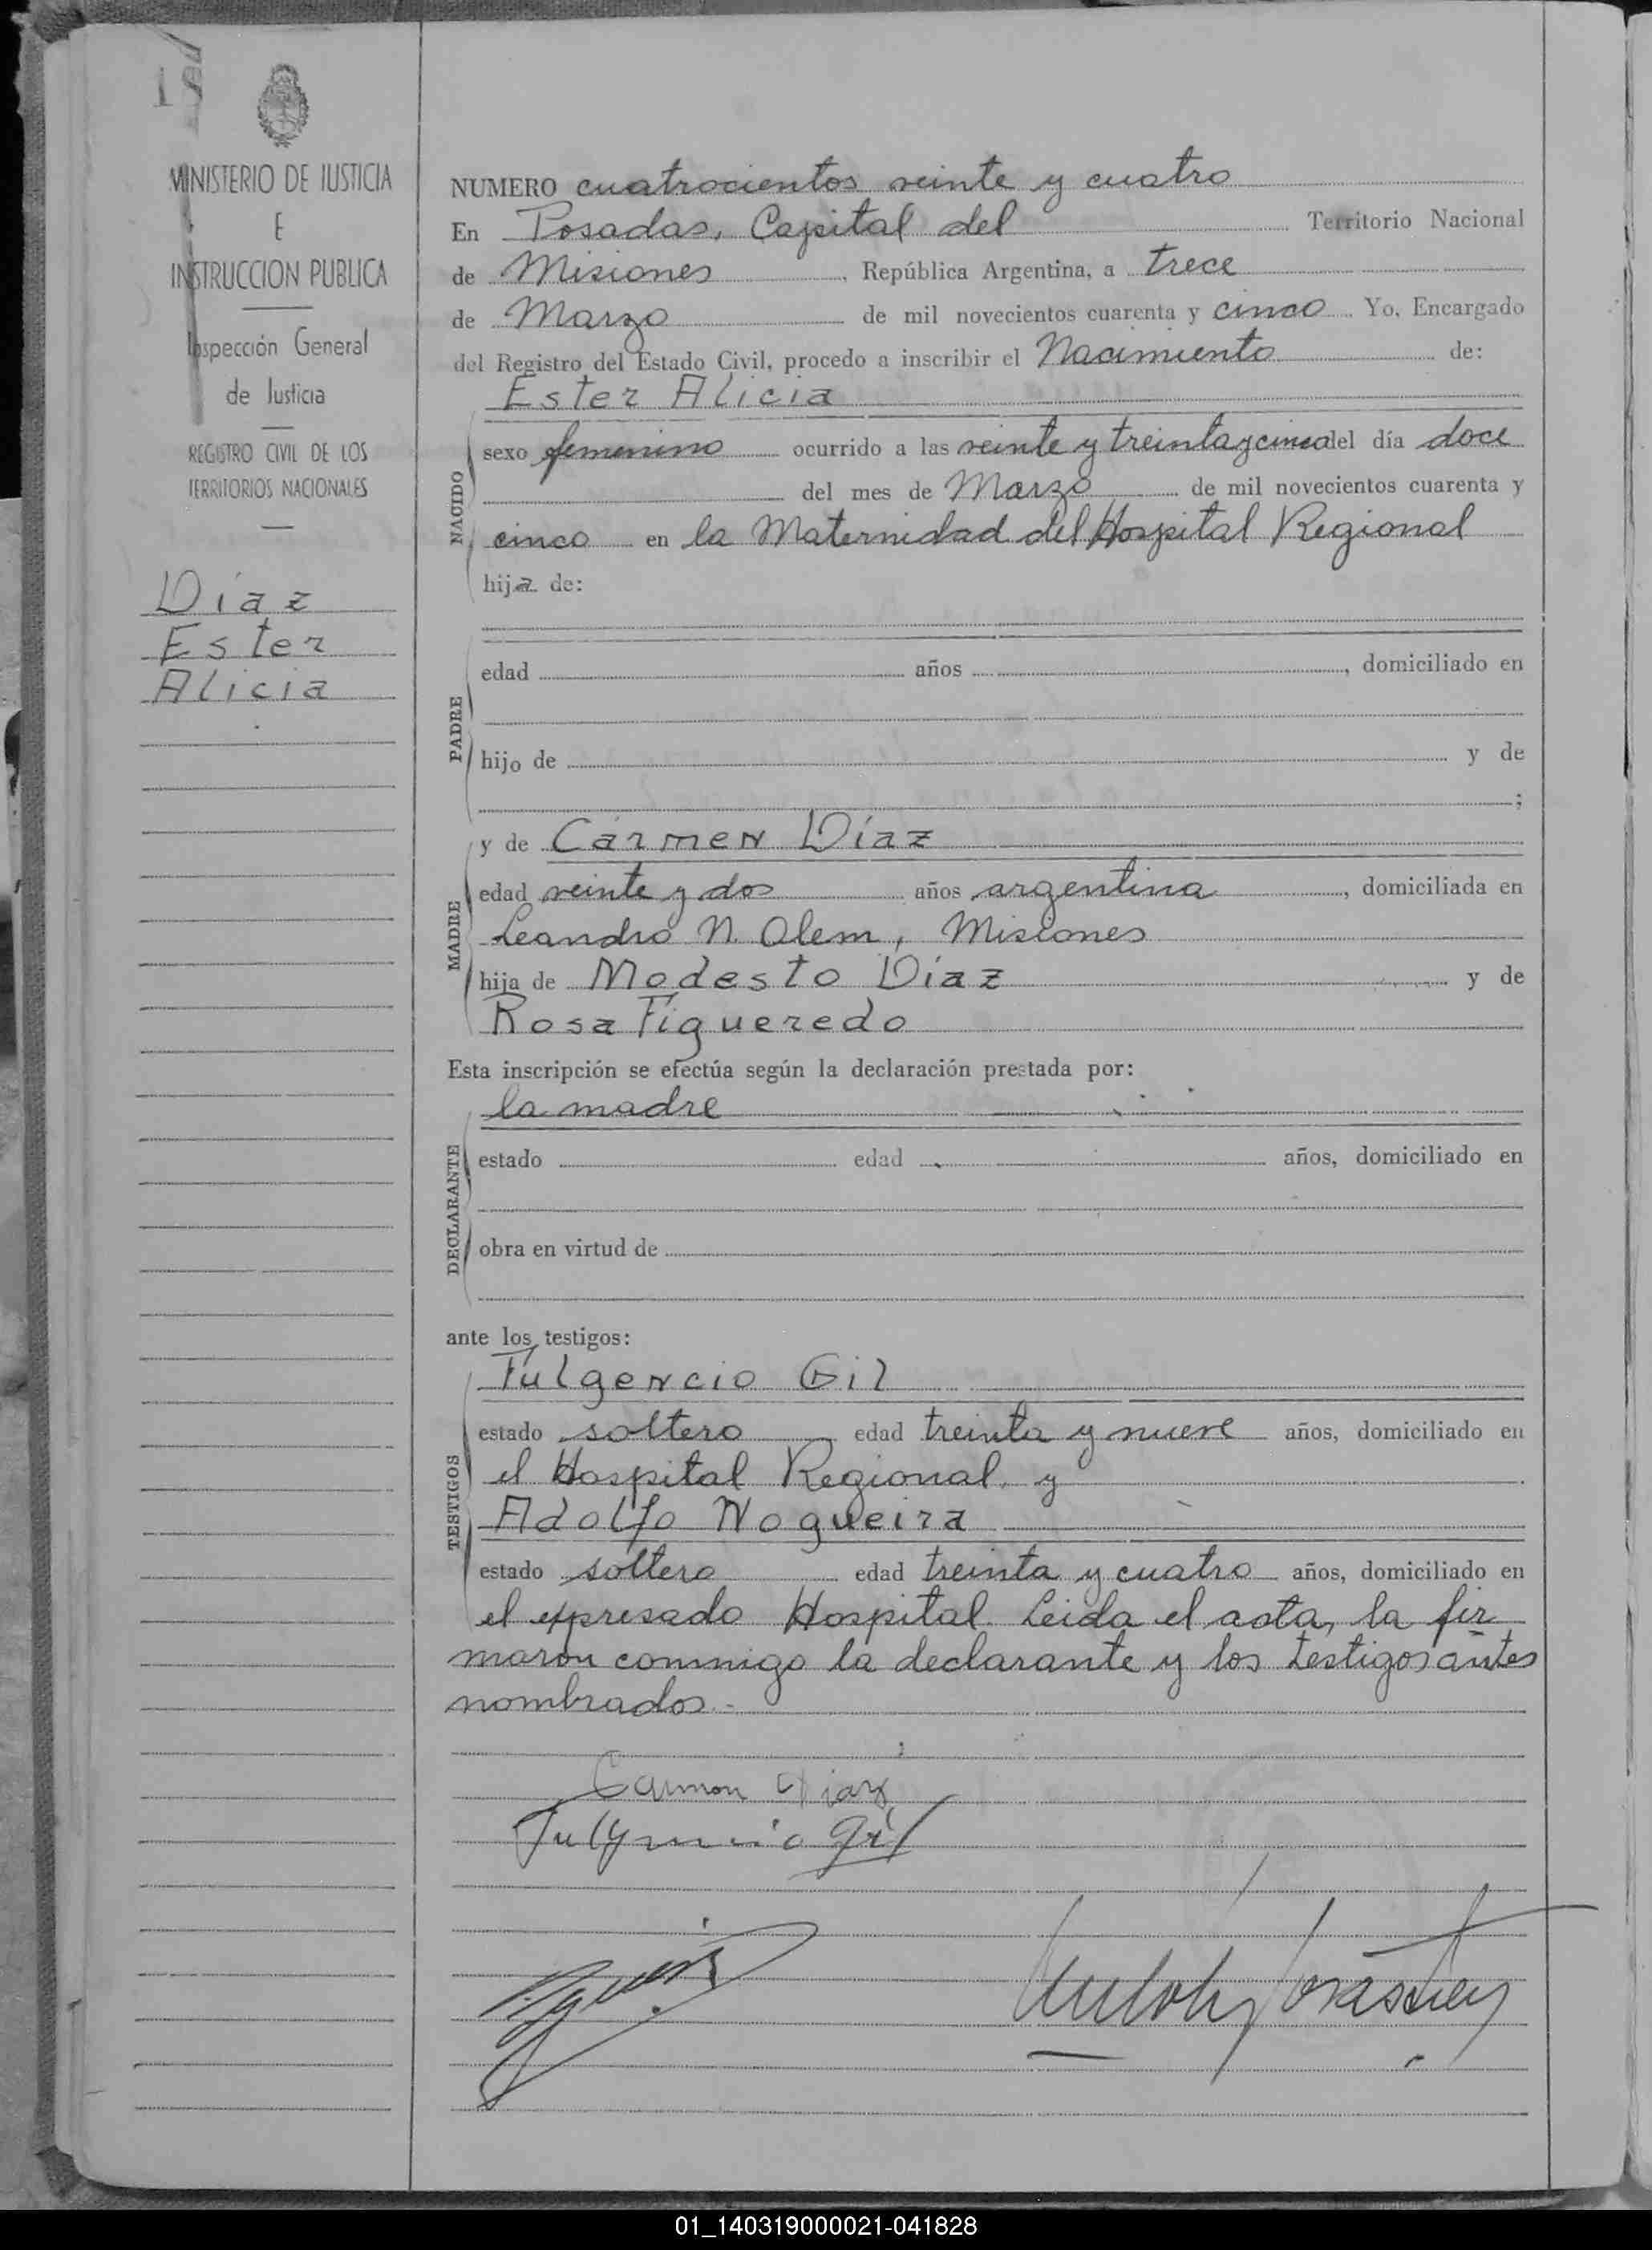 MINISTERIO DE JUSTICIA
E
INSTRUCCION PUBLICA
Inspección General
de Justicia
REGISTRO CIVIL DE LOS
TERRITORIOS NACIONALES
Díaz
Ester
Alicia
NUMERO cuatrocientos veinte y cuatro
En Posadas, Capital del Territorio Nacional
de Misiones, República Argentina, a trece
de Marzo de mil novecientos cuarenta y cinco. Yo, Encargado
del Registro del Estado Civil, procedo a inscribir el Nacimiento de:
Ester Alicia
NACIDO
sexo femenino ocurrido a las veinte y treinta y cinco del día doce
del mes de Marzo de mil novecientos cuarenta y
cinco en la Maternidad del Hospital Regional
hija de:
PADRE
edad años, domiciliado en
hijo de y de
;
MADRE
y de Cármen Díaz
edad veinte y dos años argentina, domiciliada en
Leandro N. Alem, Misiones
hija de Modesto Díaz y de
Rosa Figueredo
Esta inscripción se efectúa según la declaración prestada por:
la madre
DECLARANTE
estado edad años, domiciliado en
obra en virtud de
ante los testigos:
TESTIGOS
Fulgencio Gil
estado soltero edad treinta y nueve años, domiciliado en
el Hospital Regional, y
Adolfo Nogueira
estado soltero edad treinta y cuatro años, domiciliado en
el expresado Hospital. Leida el acta, la fir
maron conmigo la declarante y los testigos antes
nombrados.-
Carmon Diaz
Fulgencio Gil
01_140319000021-041828